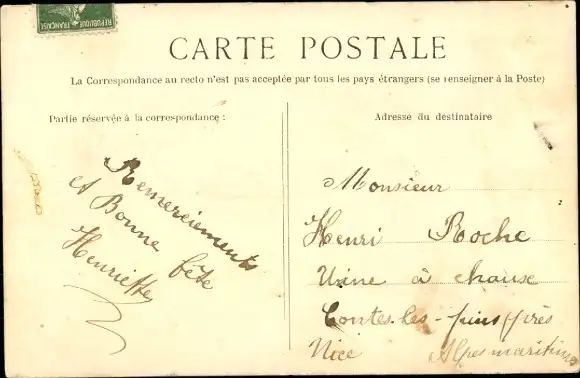 REPUBLIQUE FRANÇAISE
CARTE POSTALE
La Correspondance au recto n'est pas acceptée par tous les pays étrangers (se renseigner à la Poste)
Partie réservée à la correspondance :
Remerciements
et Bonne fête
Henriette
Adresse du destinataire
Monsieur
Henri Roche
Usine à chause
Contes-les-pins (près
Nice Alpes maritimes